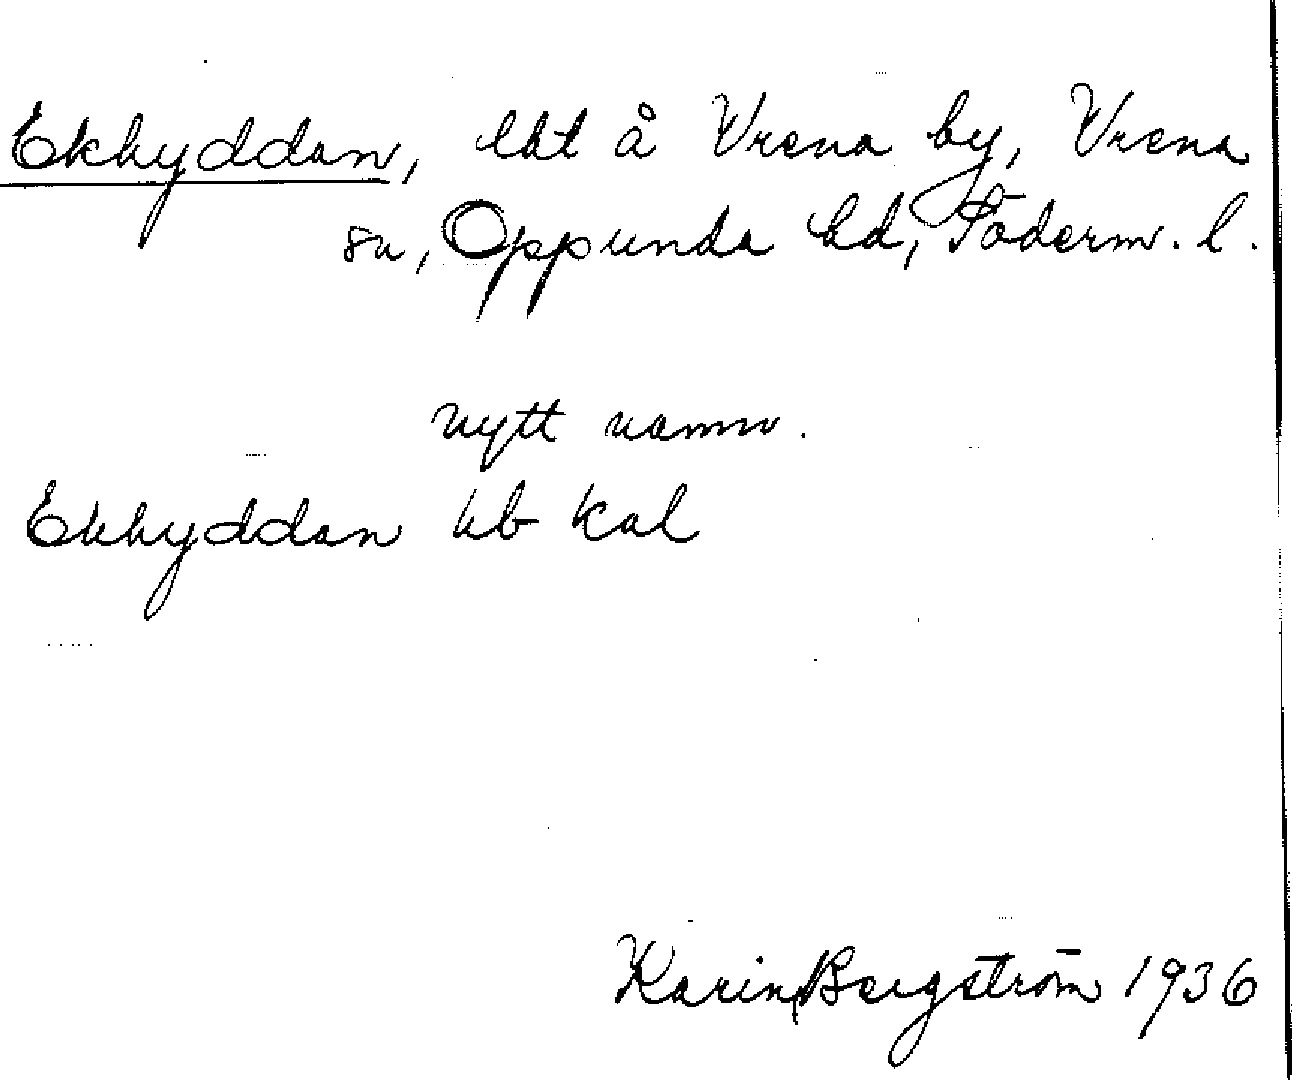 Ekhyddan, lht å Vrena by, Vrena
sn, Oppunda hd, Söderm. l.
nytt namn.
Ekhyddan hb kal
Karin Bergström 1936